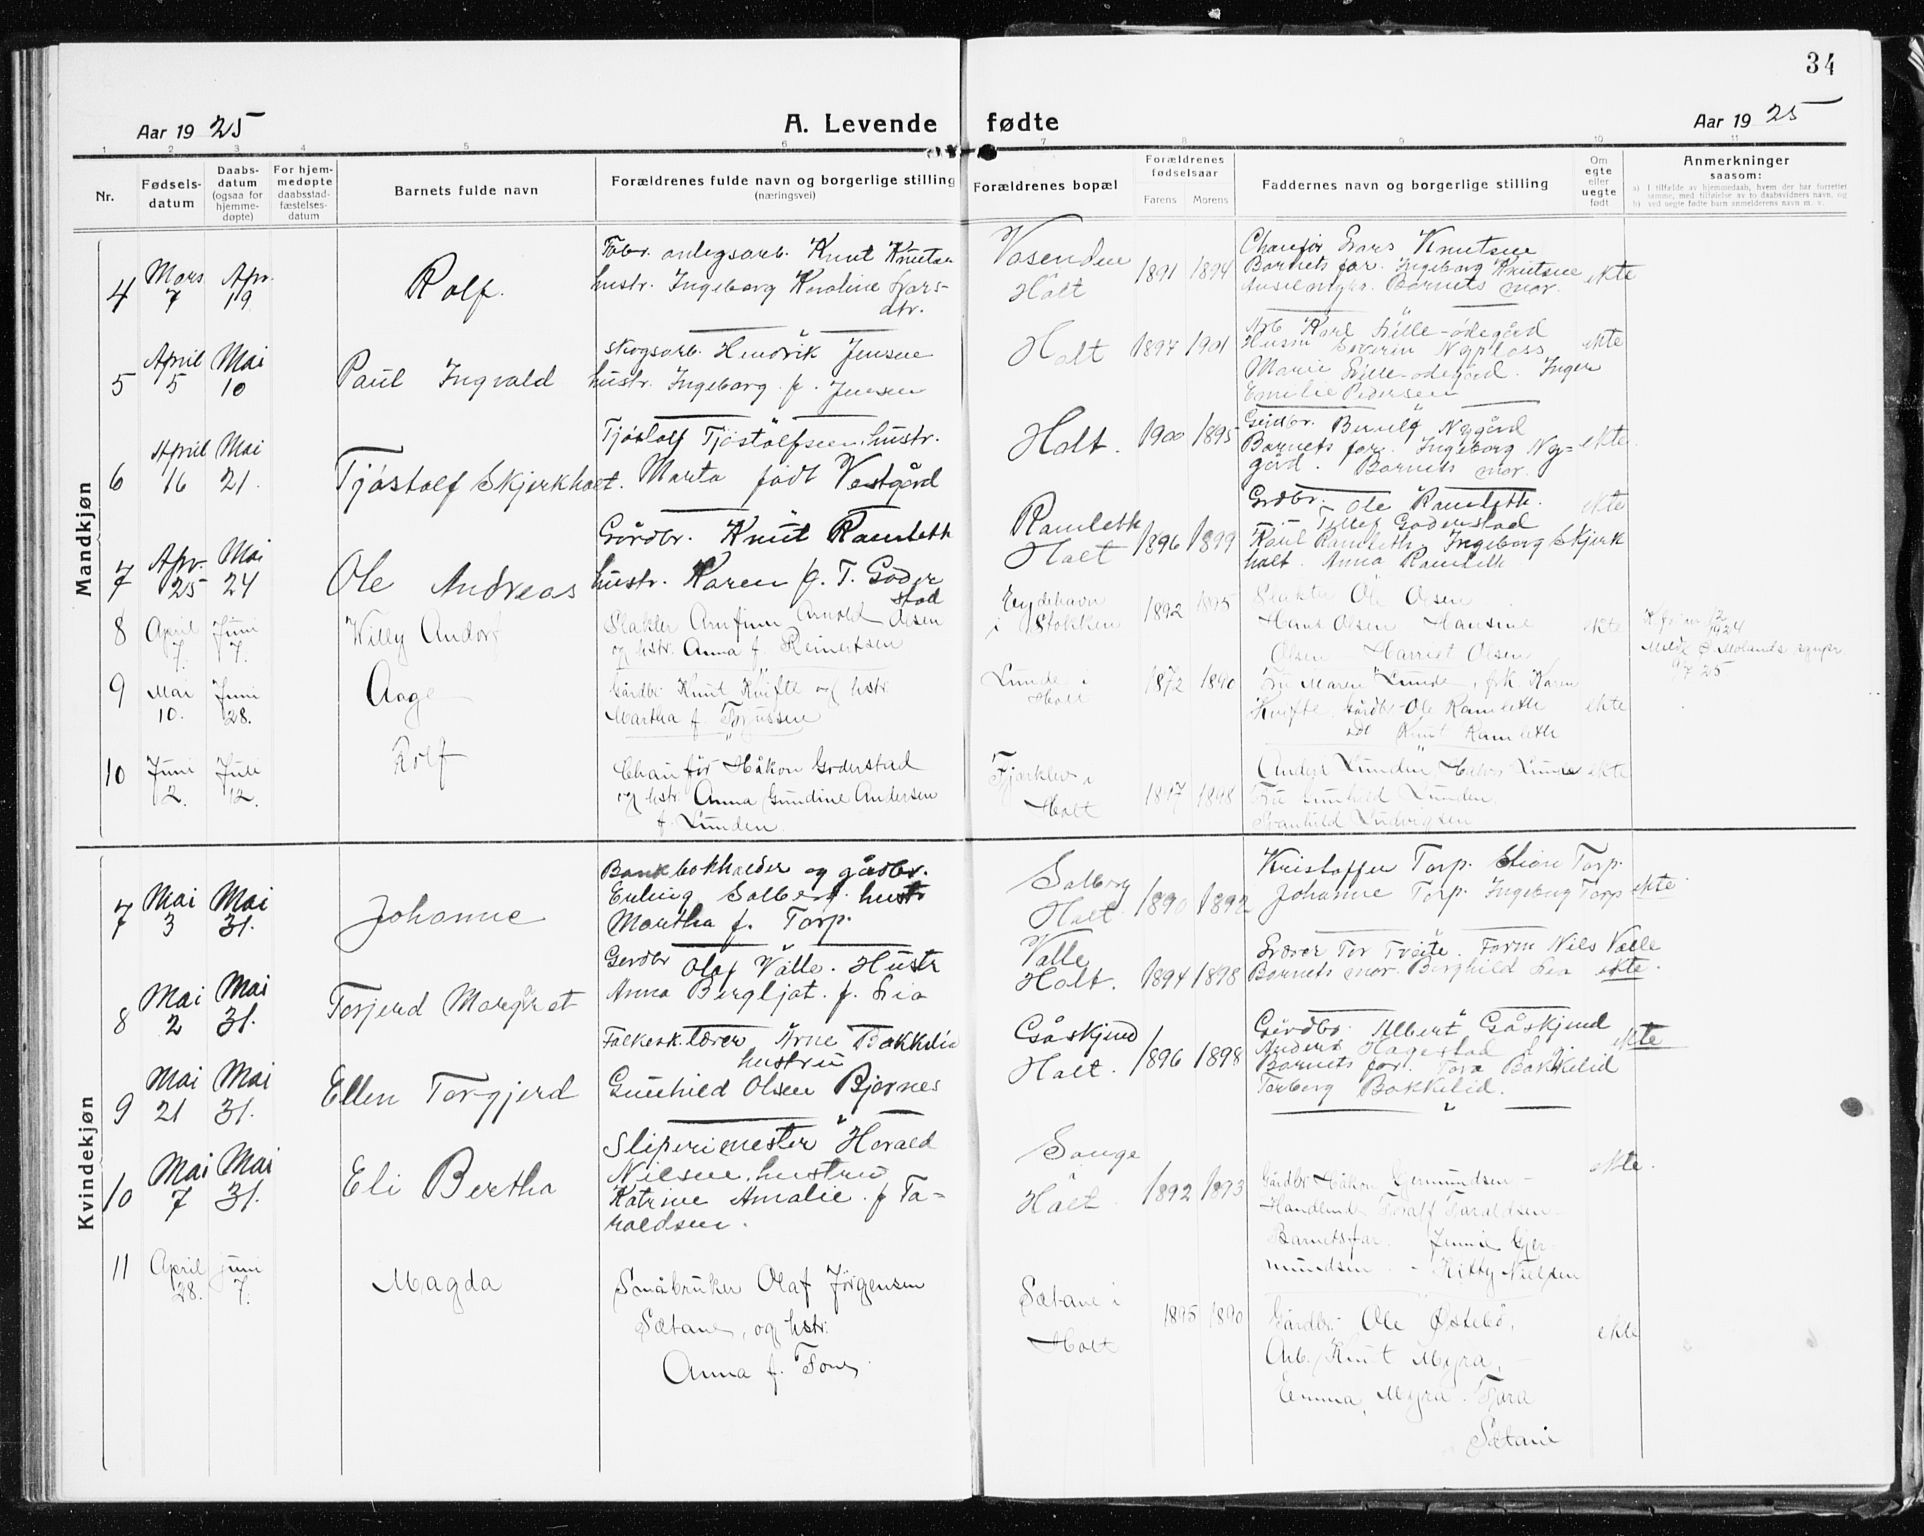 34
Aar 1925
A. Levende fødte
Aar 1925
1 2 3 4 5 6 7 8 9 10 11
Nr.
Fødsels-
datum
Daabs-
datum
(ogsaa for
hjemme-
døpte)
For hjem-
medøpte
daabsstad-
fæstelses-
datum
Barnets fulde navn
Forældrenes fulde navn og borgerlige stilling
(næringsvei)
Forældrenes bopæl
Forældrenes
fødselsaar
Farens Morens
Faddernes navn og borgerlige stilling
Om
egte
eller
uegte
født
Anmerkninger
saasom:
a) I tilfælde av hjemmedaab, hvem der har forrettet
samme, med tilføielse av to daabsvidners navn, og
b) ved uegte fødte barn anmelderens navn m. v.
Mandkjøn
4
Mars
7
Apr.
19
Rolf.
Fabr. anlegsarb. Knut Knutsen
hustr. Ingeborg Karoline Lars-
dtr.
Vosenden
Holt
1891 1894
Chaufør Lars Knutsen
Barnets far. Ingeborg Knutsen
Barnets mor.
ekte
5
April
5
Mai
10
Paul Ingvald
Skogsarb. Hendrik Jensen
hustr. Ingeborg f. Jensen
Holt
1897 1901
Arb Karl Lille-ødegård
Husm Severin Nyplass
Marie Lille-ødegård. Inger
Emilie Pedersen
ekte
6
April
16
Mai
21.
Tjøstolf Skjerkholt.
Tjøstolf Tjøstolfsen hustr.
Marta født Vestgård
Holt.
1900 1895
Gårdbr. Nygård
Barnets far. Ingeborg Ny=
gård. Barnets mor.
ekte
7
Apr.
25
Mai
24
Ole Andreas
Gårdbr. Knut Ramleth
hustr. Karen f. T. Goder
stad
Ramleth
Holt
1896 1899
Grdbr. Ole Ramleth.
Tellef Goderstad
Ramleth. Ingeborg Skjerk
holt. Anna Ramleth
ekte
8
April
7.
Juni
7.
Willy Andorf
Slakter Arnfinn Arnold Olsen
og hstr. Anna f. Reinertsen
Eydehavn
i Stokken
1892 1895
Slakter Ole Olsen
Hans Olsen Hansine
Olsen Harriet Olsen
ekte
12
1924
Meldt Ø. Molands sgnpr
9/7 25
9
Mai
10.
Juni
28.
Aage
Gårdbr Knut Knifte og hstr.
Martha f. Torjussen
Lunde i
Holt
1872 1890
Fru Maren Lunde, frk Karen
Knifte. Gårdbr Ole Ramleth
Knut Ramleth
ekte
10
Juni
2.
Juli
12.
Rolf
Chaufør Håkon Goderstad
og hstr. Anna Gundine Andersen
f. Lunden
Fjærkleiv i
Holt
1897 1898
Lunden, Halvor Lunde
Fru Gunhild Lunden
Ludvigsen
ekte
Kvindekjøn
7
Mai
3
Mai
31.
Johanne
Bankbokholder og gårdbr.
Erling Solberg. hustr
Martha f. Torp.
Solberg
Holt
1890 1892
Kristoffer Torp. Torp.
Johanne Torp. Ingeborg Torp
ekte.
8
Mai
2
Mai
31.
Torjerd Margret
Gerdbr Olaf Valle. Hustr
Anna Bergljot. f. Lia
Valle
Holt.
1894 1898
Lærer Tor Tveite. Form Nils Valle
Barnets mor. Borghild Lia
ekte.
9
Mai
21
Mai
31.
Ellen Torgjerd
Folkesk.lærer Arne Bakkelid
hustru
Gunhild Olsen Bjørnes
Gåskjend
Holt.
1896 1898
Gårdbr. Albert Gåskjend
Anders Hagestad
Barnets far. Tora Bakkelid
Torberg Bakkelid.
ekte
10
Mai
7
Mai
31.
Eli Bertha
Sliperimester Harald
Nielsen. hustru
Katrine Amalie. f Ta-
raldsen.
Songe
Holt
1892 1893
Gårdbr Håkon Gjermundsen -
Toralf Taraldsen -
Barnets far. Jennie Gjer
mundsen. - Kitty Nielsen
ekte.
11
April
28.
juni
7.
Magda
Småbruker Olaf Jørgensen
Sætane, og hstr.
Anna f. Tones
Sætane i
Holt
1895 1890
Gårdbr Ole Østebø.
Arb. Knut Myra,
Emma Myra. Tora
Sætane
ekte